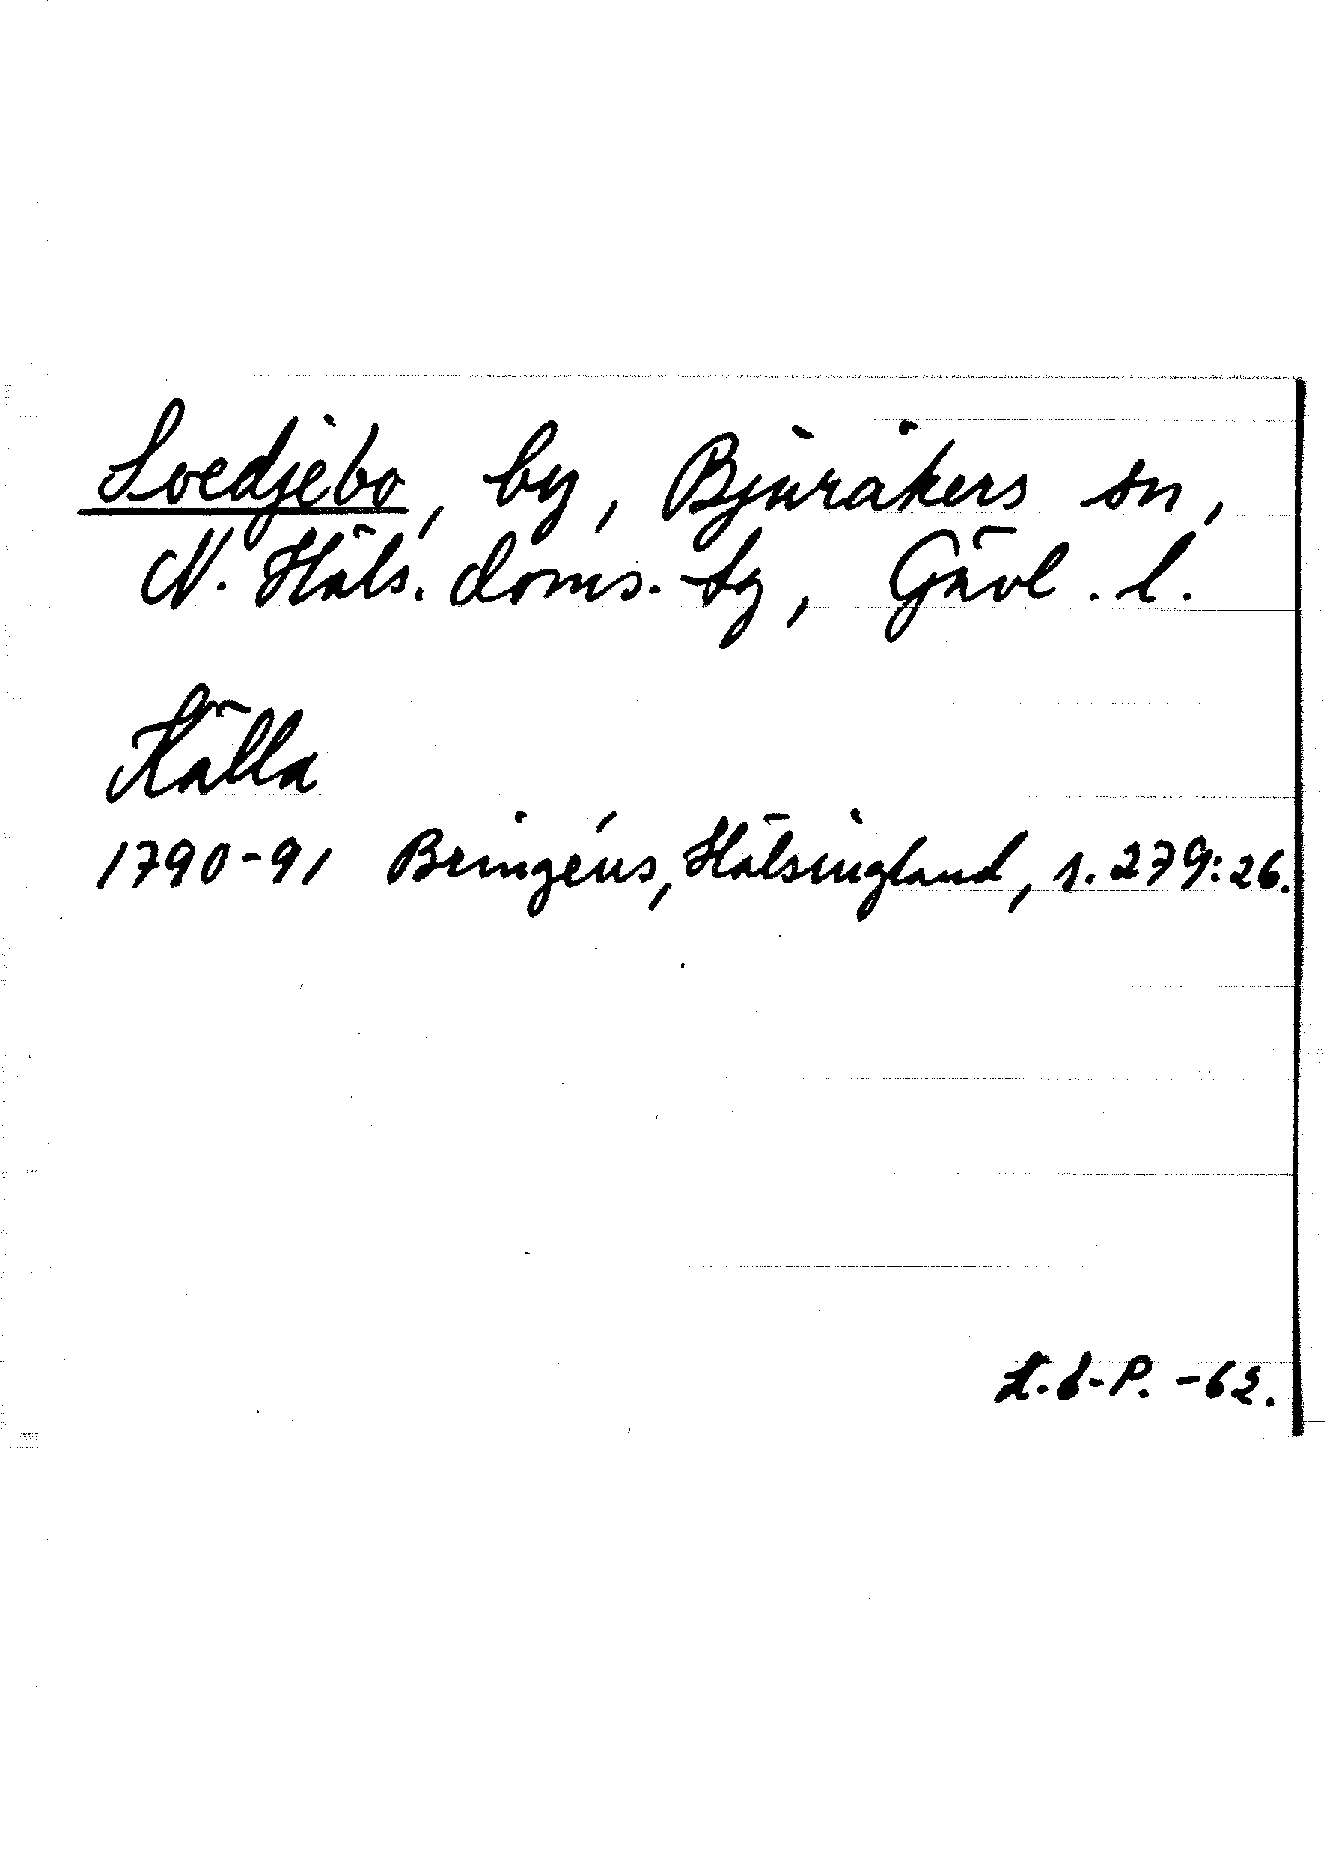 Svedjebo, by, Bjuråkers sn,
N. Häls. doms. tg, Gävl. l.
Källa
1790-91 Bringéus, Hälsingland, s. 279:26.
-62.